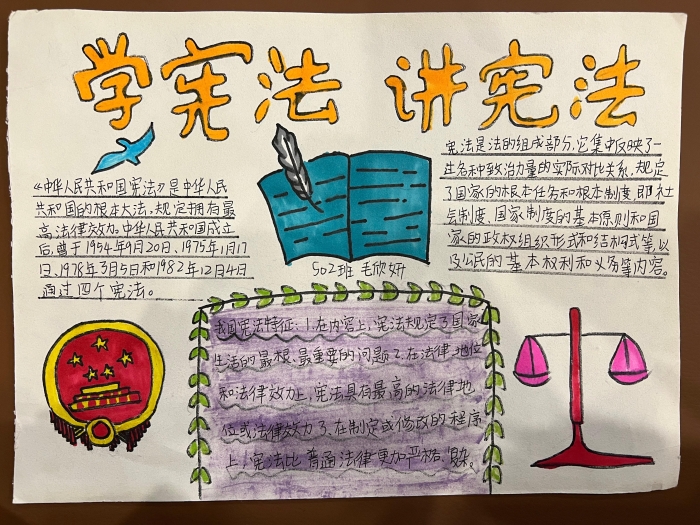 学宪法 讲宪法
《中华人民共和国宪法》是中华人民
共和国的根本大法,规定拥有最
高法律效力。中华人民共和国成立
后,曾于1954年9月20日、1975年1月17
日、1978年3月5日和1982年12月4日
通过四个宪法。
502班 毛欣妍
宪法是法的组成部分,它集中反映了一
生各种政治力量的实际对比关系,规定
了国家的根本任务和根本制度,即社
会制度、国家制度的基本原则和国
家的政权组织形式和结构式等,以
及公民的基本权利和义务等内容。
我国宪法特征:1.在内容上,宪法规定了国家
生活的最根、最重要的问题2.在法律地位
和法律效力上,宪法具有最高的法律地
位或法律效力3、在制定或修改的程序
上,宪法比普通法律更加严格。